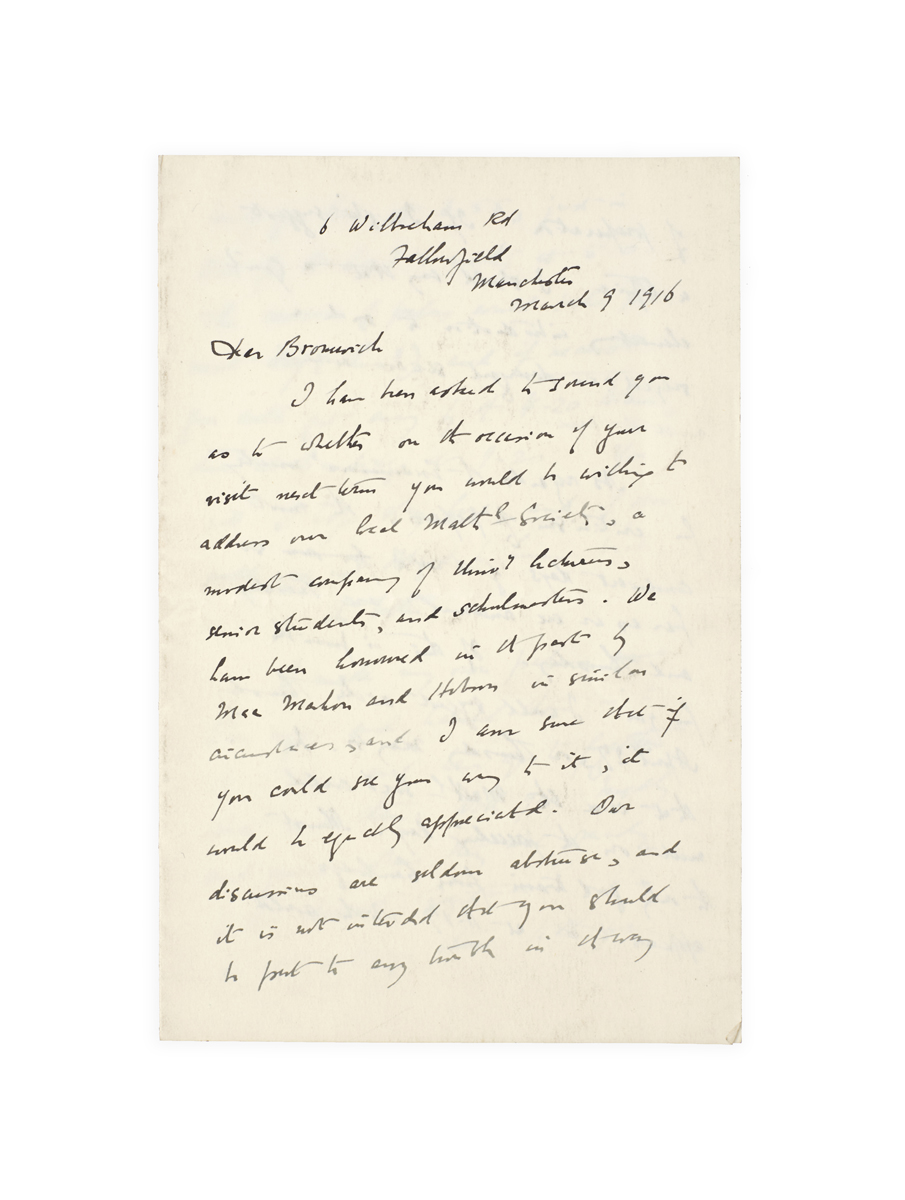 6 Wilbraham Rd
Fallowfield
Manchester
March 9 1916
Dear Bromwich
I have been asked to sound you
as to whether on the occasion of your
visit next term you would be willing to
address our local Math^l Society, a
modest company of Univ^y lecturers,
senior students, and schoolmasters. We
have been honoured in the past by
Mac Mahon and Hobson in similar
circumstances, and I am sure that if
you could see your way to it, it
would be equally appreciated. Our
discussions are seldom abstruse, and
it is not intended that you should
be put to any trouble in the way